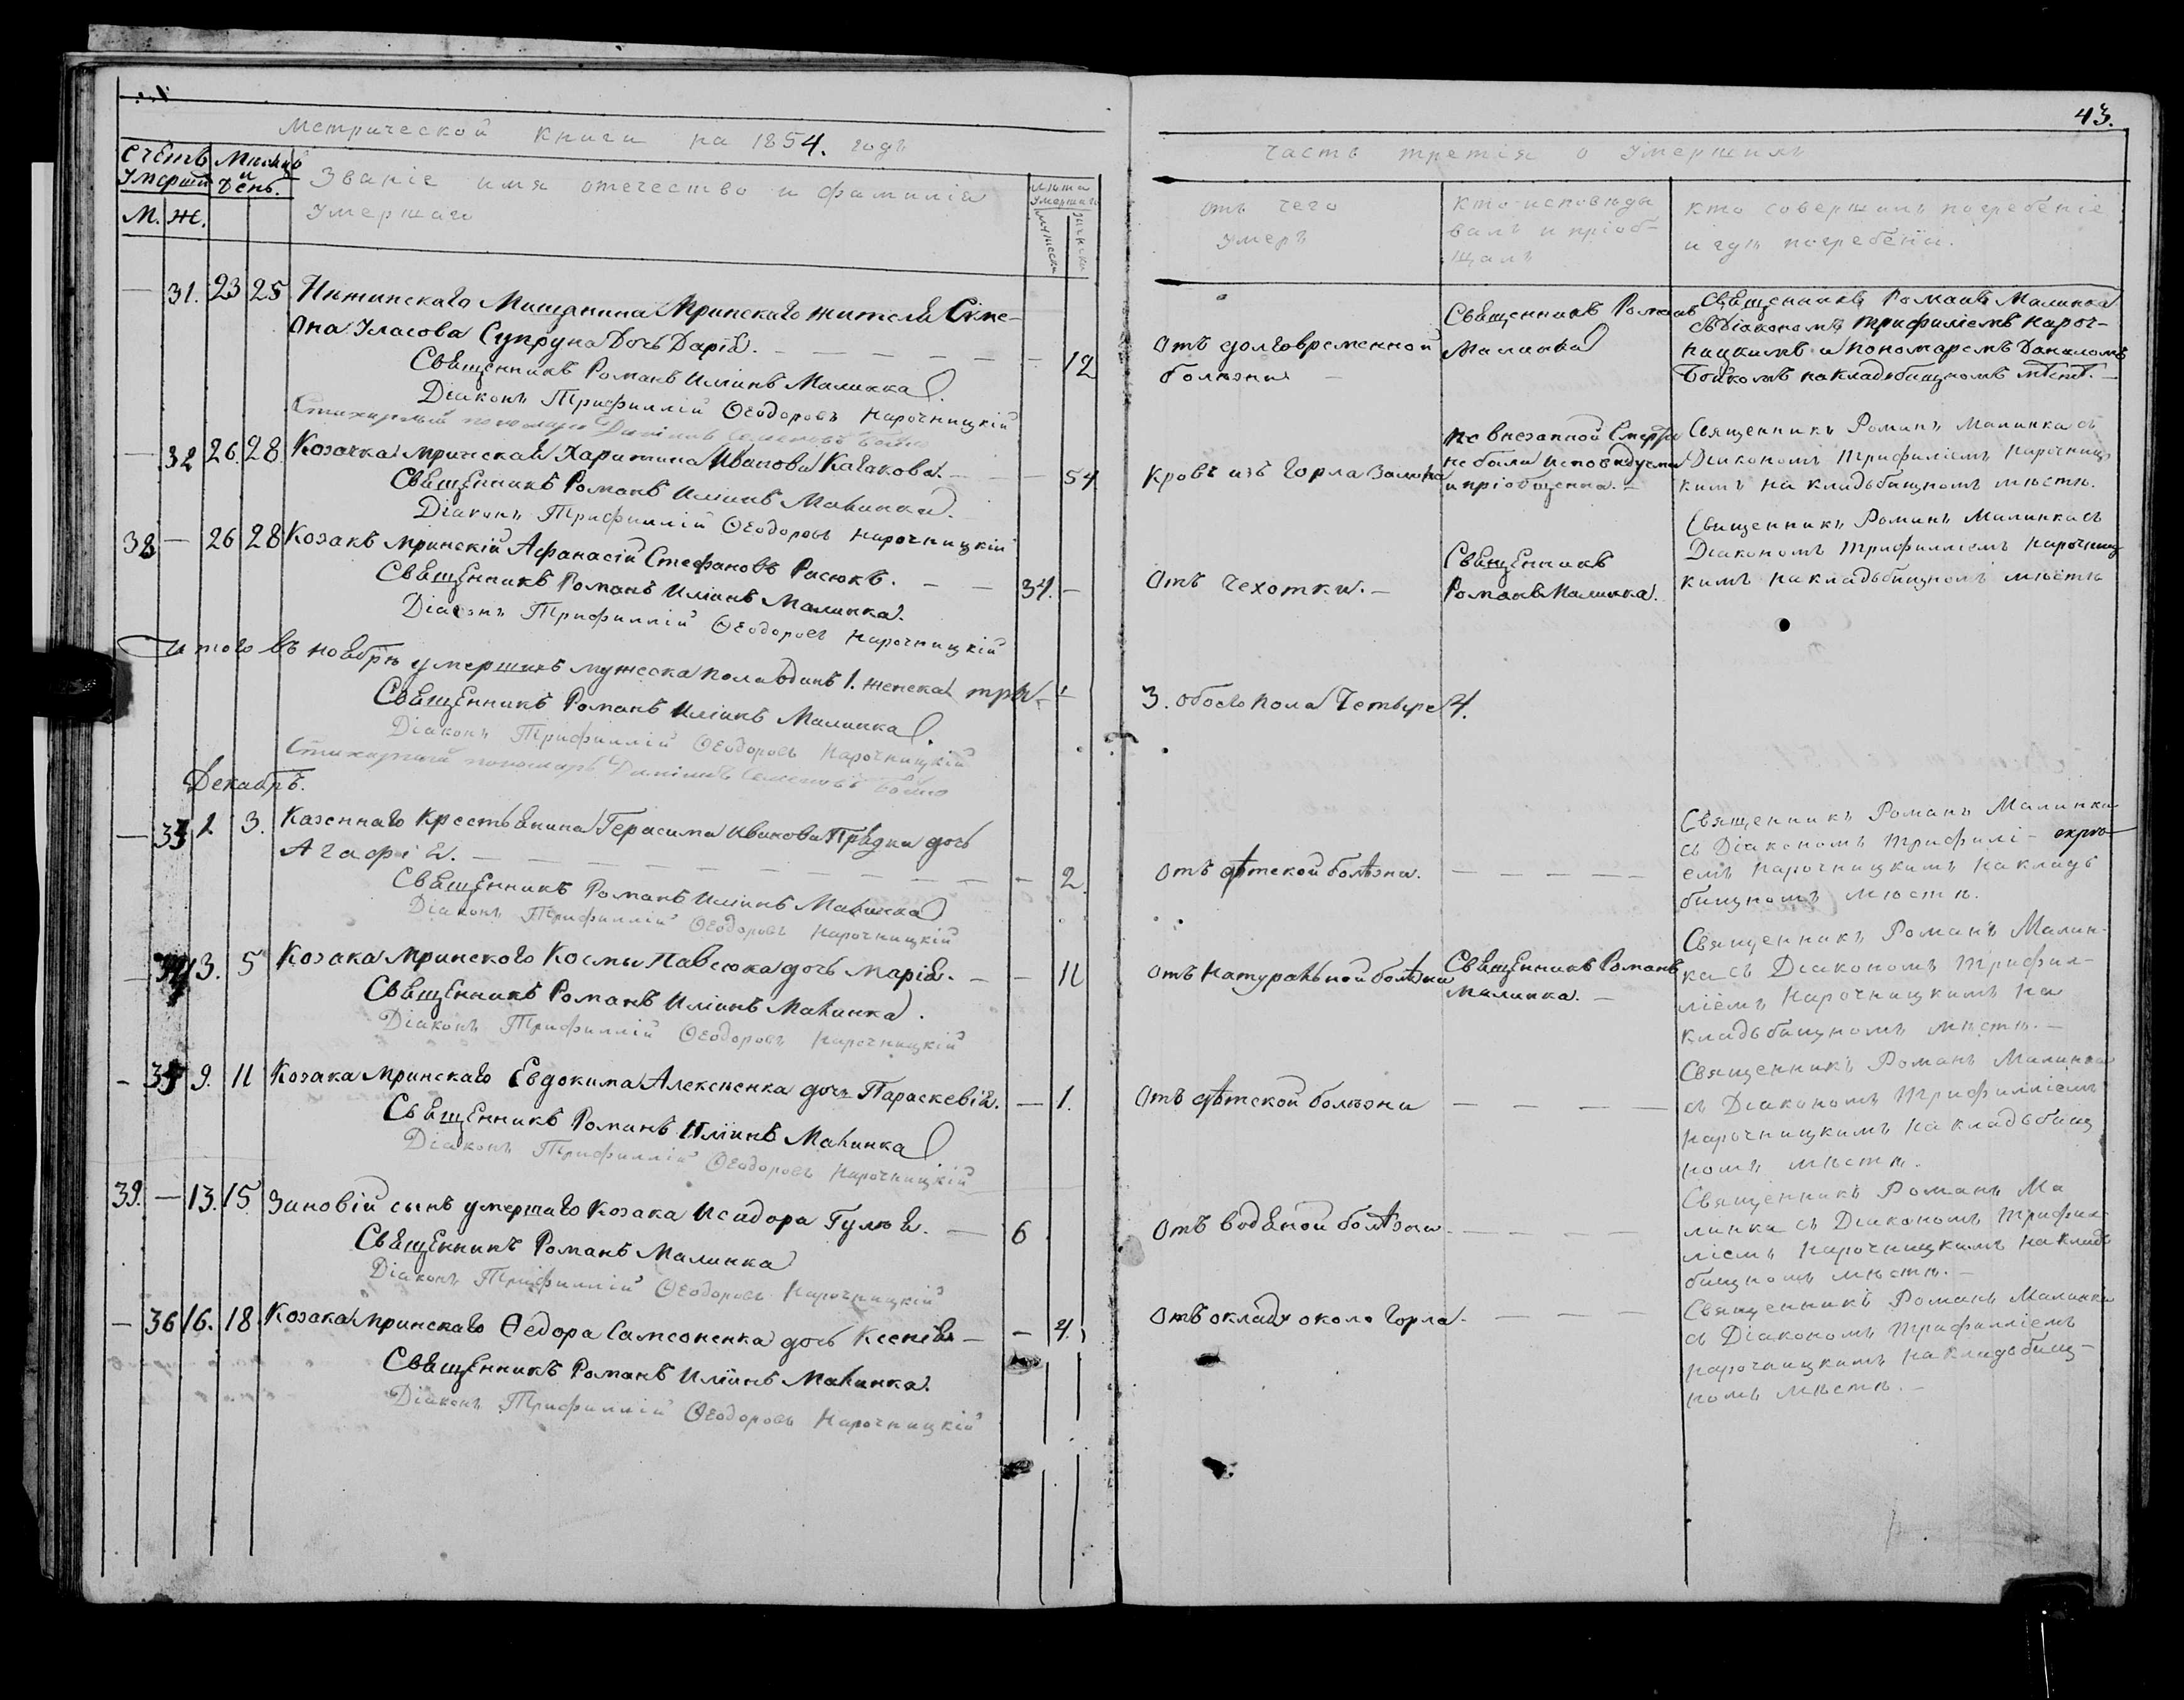 43.
Метрической книги на 1854. годъ
Часть третія о Умершихъ
Счетъ Умерши
Мѣсяцъ и День.
М. Ж.
Званіе имя отечество и фамилія
Умершаго
лѣта Умершаго
мужеска
женска
отъ чего
умеръ
кто исповѣды
валъ и пріоб-
щалъ
кто совершалъ погребеніе
и гдѣ погребены.
— 31. 23 25 Нѣжинскаго Мѣщанина Мринскаго жителя Симе-
она Власова Супруна Дочь Дарія. — 12
Священникъ Романъ Иліинъ Малинка
Діаконъ Трифиллій Ѳеодоровъ Нарочницкій
Стихарный пономарь Даніилъ Семеновъ Бойко
Отъ долговременной
болѣзни —
Священникъ Романъ
Малинка
Священникъ Романъ Малинка
съ Діакономъ Трифиліемъ Нароч-
ницкимъ и Пономаремъ Даниломъ
Бойкомъ на кладьбищномъ мѣстѣ. —
— 32 26. 28. Козачка Мринская Харитина Иванова Качакова. — 54
Священникъ Романъ Иліинъ Малинка.
Діаконъ Трифиллій Ѳеодоровъ Нарочницкій
Кровъ изъ горла
по внезапной Смерти
не была исповѣдуема
и пріобщенна. —
Священникъ Романъ Малинка съ
Діакономъ Трифиліемъ Нарочниц
кимъ на кладьбищномъ мѣстѣ.
38 — 26 28 Козакъ Мринскій Афанасій Стефановъ Расюкъ. — — 34. —
Священникъ Романъ Иліинъ Малинка.
Діаконъ Трифиллій Ѳеодоровъ Нарочницкій
Отъ чехотки. —
Священникъ
Романъ Малинка.
Священникъ Романъ Малинка съ
Діакономъ Трифилліемъ Нарочниц
кимъ на кладьбищномъ мѣстѣ
Итого въ ноябрѣ умершихъ мужеска пола одинъ 1. женска три —
3. обоего пола Четыре 4.
Священникъ Романъ Иліинъ Малинка
Діаконъ Трифиллій Ѳеодоровъ Нарочницкій
Стихарный пономарь Даніилъ Семеновъ Бойко
Декабрь.
— 33 1 3. Казеннаго Крестьянина Герасима Иванова Прядки дочь
Агафія. — 2.
Священникъ Романъ Иліинъ Малинка
Діаконъ Трифиллій Ѳеодоровъ Нарочницкій
Отъ дѣтской болѣзни. — — — —
Священникъ Романъ Малинка
съ Діакономъ Трифилі-
емъ Нарочницкимъ на кладь
бищномъ мѣстѣ.
— 34 3. 5 Козака Мринского Космы Павсюка дочь Марія. — — 11
Священникъ Романъ Иліинъ Малинка.
Діаконъ Трифиллій Ѳеодоровъ Нарочницкій
Отъ натуральной болѣзни
Священникъ Романъ
Малинка. —
Священникъ Романъ Малин-
ка съ Діакономъ Трифил-
ліемъ Нарочницкимъ на
кладьбищномъ мѣстѣ. —
— 35 9. 11 Козака Мринскаго Евдокима Алексеенка дочь Параскевія. — 1.
Священникъ Романъ Иліинъ Малинка
Діаконъ Трифиллій Ѳеодоровъ Нарочницкій
Отъ дѣтской болѣзни — — — —
Священникъ Романъ Малинка
съ Діакономъ Трифилліемъ
Нарочницкимъ на кладьбищ
номъ мѣстѣ.
39. — 13. 15 Зиновій сынъ умершаго козака Исидора Гулюя. — 6
Священникъ Романъ Малинка
Діаконъ Трифиллій Ѳеодоровъ Нарочницкій
Отъ водяной болѣзни. — — — —
Священникъ Романъ Ма
линка съ Діакономъ Трифил
ліемъ Нарочницкимъ на кладь
бищномъ мѣстѣ. —
— 36 16. 18. Козака Мринскаго Ѳедора Самсоненка дочь Ксенія — — 4.
Священникъ Романъ Иліинъ Малинка.
Діаконъ Трифиллій Ѳеодоровъ Нарочницкій
Отъ окладу около горла. — — —
Священникъ Романъ Малинка
съ Діакономъ Трифилліемъ
Нарочницкимъ на кладьбищ-
номъ мѣстѣ. —